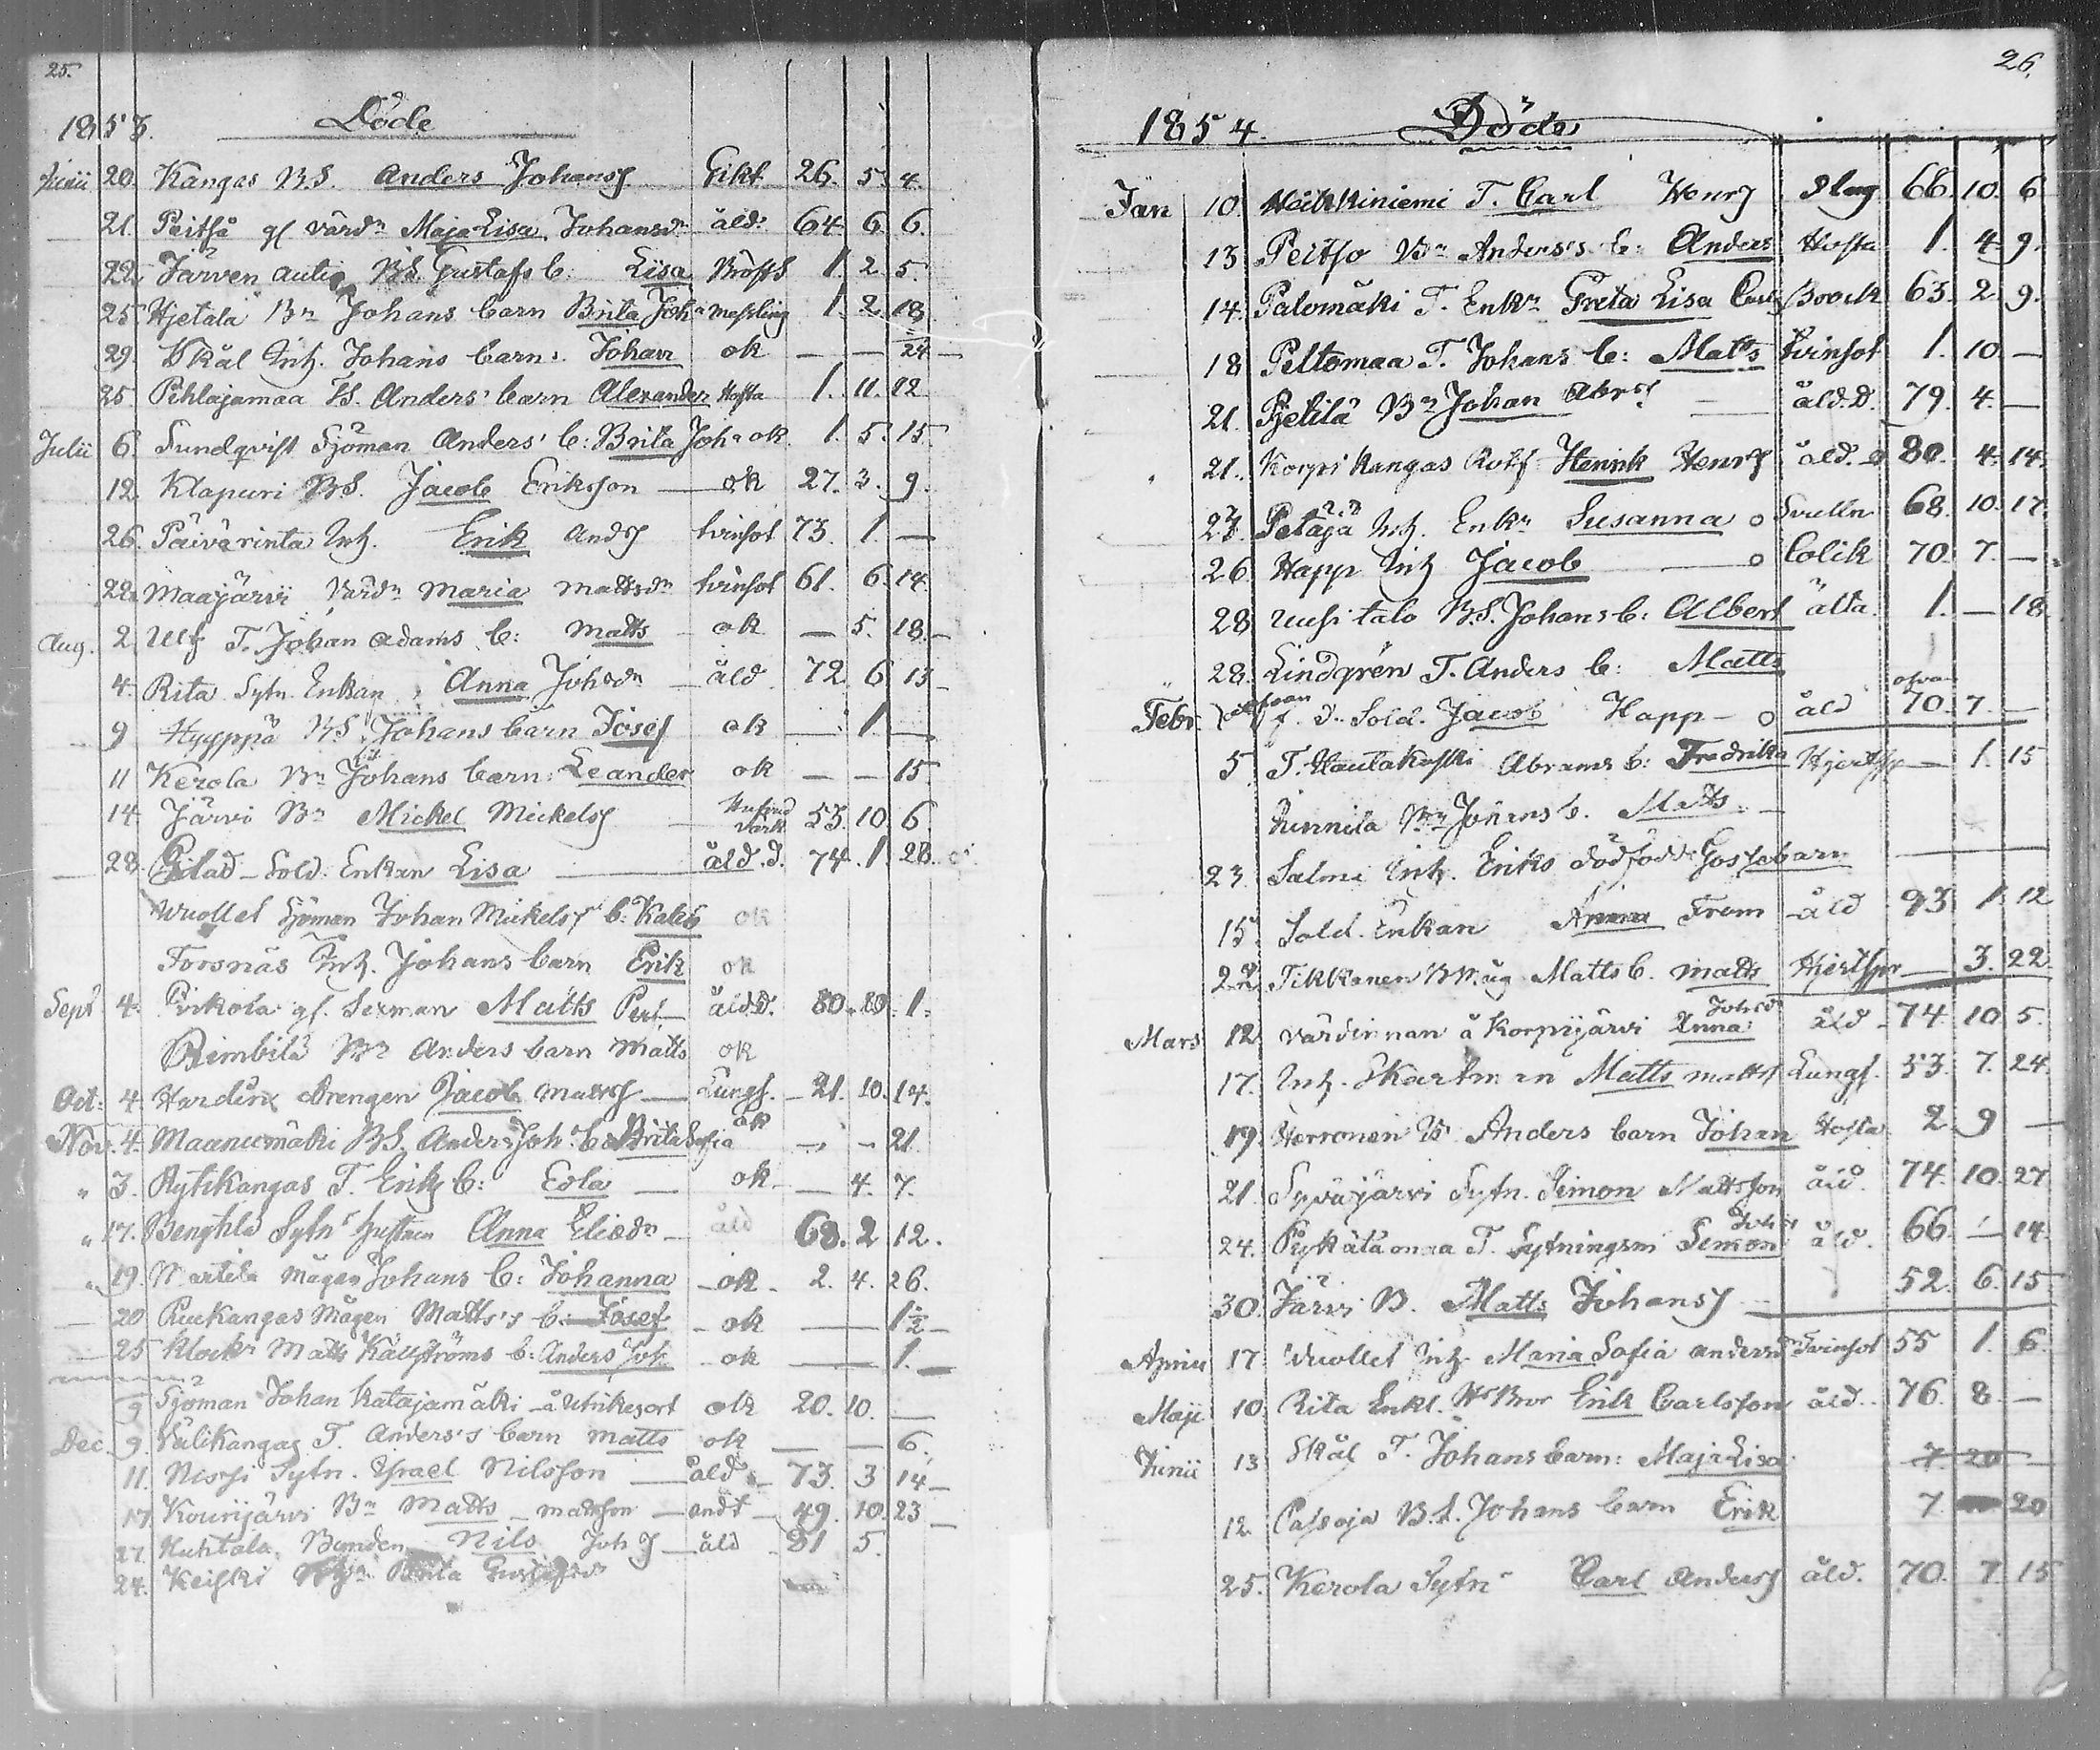 25.
1853. Döde
Junii 20. Kangas BS. Anders Johansf Gikt 26. 5. 4.
21. Peitså gl värdn Maja Lisa Johansdn åld. 64. 6. 6.
22. Järven autio BS. Gustafs b: Lisa Bröfts 1. 2. 5.
25. Hjetala Bn Johans barn Brita Joha messling 1. 2. 18
29. Skäl Inh. Johans barn: Johan ok — — 24 —
25 Pihlajamaa Anders' barn Alexander Hosta 1. 11. 12
Julii 6. Sundqvist Sjöman Anders' b: Brita Joha ok. 1. 5. 15
12. Klapuri BS. Jacob Eriksson — ok 27. 3. 9.
26. Päivärinta Inh. Erik Andsf tvinsot 73. 1. —
22. Maajärvi Värdn Maria Mattsdn tvinsot 61. 6. 14.
Aug. 2. Ulf T. Johan Adams b: Matts ok — 5. 18. —
4. Rita Sytn. Enkan Anna Johsdn åld. 72. 6. 13 —
9 Hyyppä BS Johans barn Josef ok — 1. —
11 Kerola Bn Johans barn: Leander ok — — 15.
14 Järvi Bn Mickel Mickelsf värk 53. 10. 6.
28. Gilad Sold. Enkan Lisa — åld. d. 74. 1. 28.
Wuollet Sjöman Johan Mickelsf b: ok
Forsnäs Inh. Johans barn Erik ok
Sept 4. Pirkola gl. Sexman Matts Pert — åld.d. 80. 1.
Rimbilä Bn Anders barn Matts ok
Oct: 4. Drengen Jacob Mattsf — Lungs. — 21. 10. 14.
Nov. 4. Maanumäki BS. Anders Joh. b: Brita Sofia ok — — 21.
" 3. Rytikangas T. Eriks b: Edla — ok. — 4. 7.
" 17. Bengtila Sytn hustrun Anna Eliedn — åld 68. 2 12.
" 19. Martila mågen Johans b: Johanna — ok — 2. 4. 26.
20 Ruukangas mågen Matts's b: Josef — ok — 1½ —
25 Klock. Matts Källströms b: Anders Joh. ok — 1. —
9 Sjöman Johan Katajamäki å Utrikesort ok 20. 10. —
Dec. 9. Välikangas T. Anders's barn Matts ok — — 6.
11. Sytn. Israel Nilsson — åld. — 73. 3 14 —
17. Kounijärvi Bn Matts — Mattsson — andt — 49. 10. 23 —
27. Huhtala Bonden Nils Joh f — åld 81 5.
24. Keiski Brita

26.
1854. Döde
Jan 10 Heikkiniemi T. Carl Henrsf Slag 66. 10. 6
13 Peitso Bn Anders's b: Anders Hosta 1. 4. 9.
14. Palomäki T. Enkn Greta Lisa Brock 63. 2 9.
18 Peltomaa T. Johans b: Matts tvinsot 1. 10. —
21. Pjetilä Bn Johan Abrsf — åld. d. 79. 4. —
21. Korpi kangas Rotf Henrik Henrsf åld. d 80. 4. 14.
23. Petäjä Inh. Enkn Susanna o Svulln 68. 10. 17.
26. Happ Inh Jacob — o Colik 70. 7. —
28 Uusitalo B.S. Johans b: Albert älta. 1. — 18
28. Lindgrén T. Anders b: Matts
Febr. f. d. Sold. Jacob Happ — o åld ofvan 70. 7. —
5 T. Hautakoski Abrams b: Fredrika Hjertspr — 1. 15
Junnila Bn Johans b. Matts. —
23. Salmi Inh. Eriks dödfödd Gossebarn —
15. Sold. Enkan Anna From — åld 93 1. 12
22 Tikkanen B Måg Matts b. Matts Hjertspr — 3. 22
Mars 12 värdinnan å Korpijärvi Anna Johsd åld — 74 10 5.
17. Inh. Skartman Matts Mattsf Lungs. 53. 7. 24.
19. Herronen Anders barn Johan Hosta 2. 9 —
21. Syväjärvi Sytn. Simon Mattsson åld. 74. 10. 27
24. Pyhätämaa T. Sytningsm Simon åld. 66. — 14.
30. Järvi B. Matts Johansf — 52. 6. 15
Aprill 17. Wuollet Inh. Maria Sofia Andersd Tvinsot 55 1. 6.
Maji 10. Rita Enkl. Erik Carlsson åld. 76. 8. —
Junii 13 Skäl T. Johans barn: Maja Lisa 7. 20
12. Passoja B.S. Johans barn Erik 7. 20
25. Kerola Sytn Carl Andersf åld. 70. 7. 15